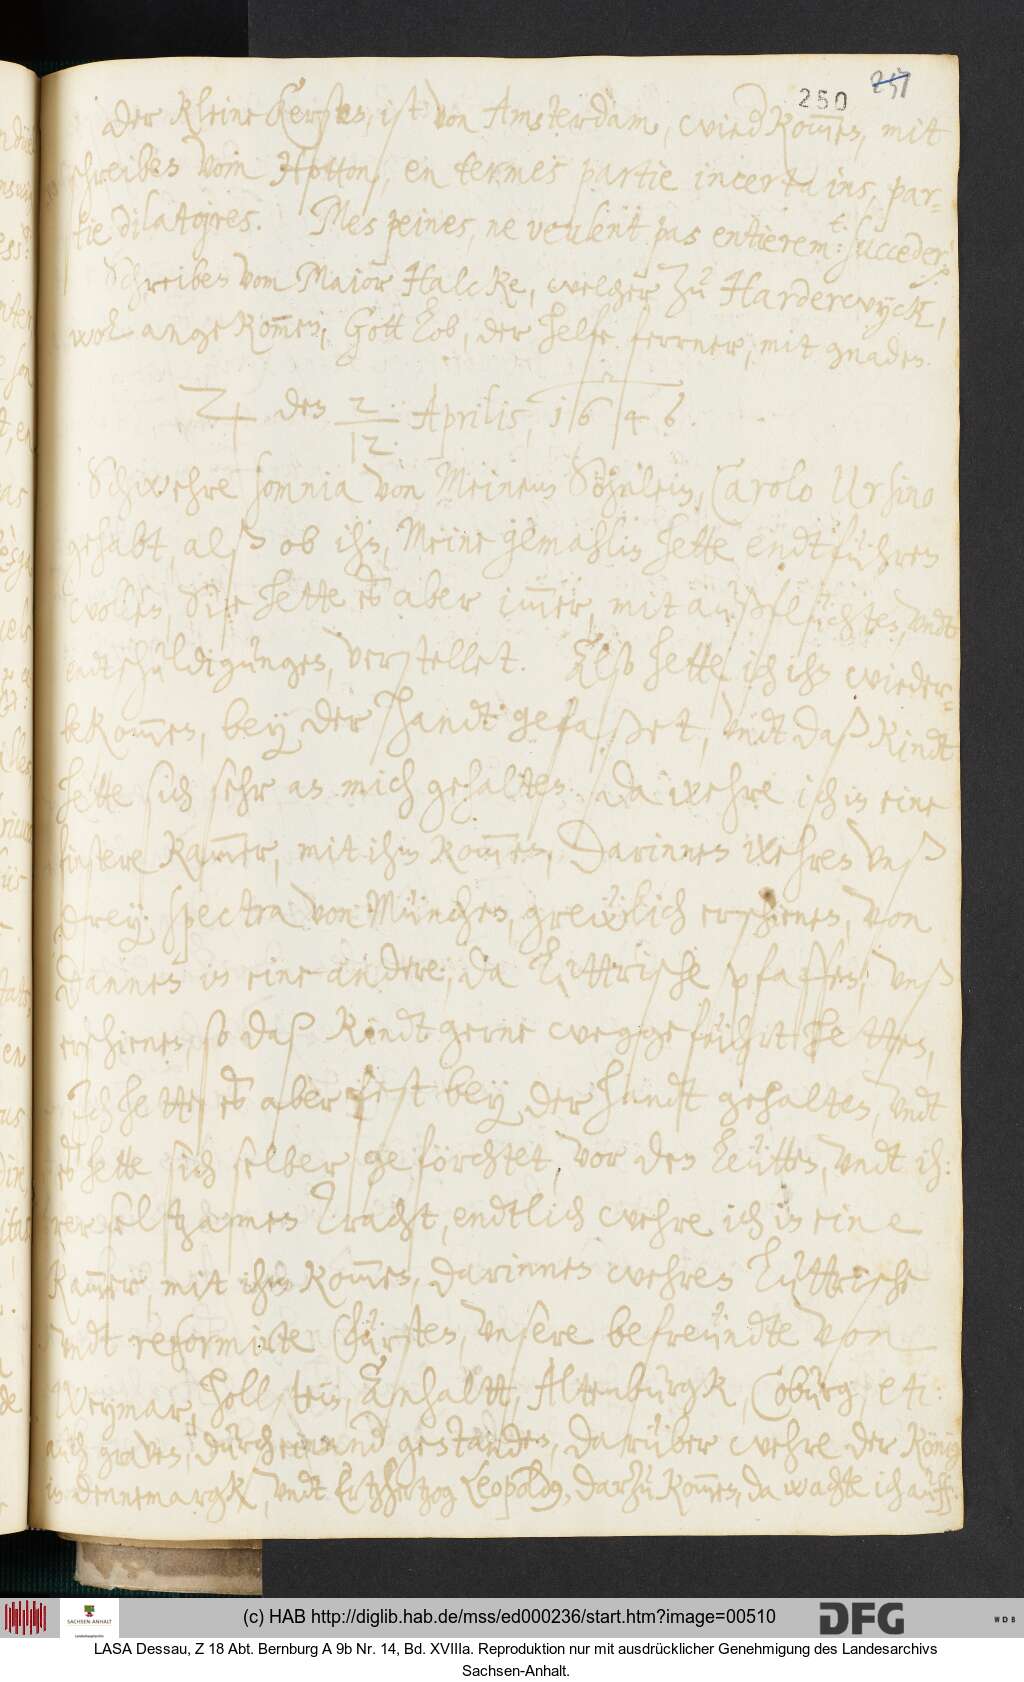 250 251
der kleine Kersten, ist von Amsterdam, wied kom̅en, mit
schreiben vom Hotton, en termes partie incertains, par-
tie dilatoyres. Mes peines, ne veulent pas entierem:t succeder.
Schreiben vom Maior Halcke, welcher zu Harderwyck,
wol angekom̅en, Gott lob, der helfe ferrner, mit gnaden.
♃ den 2/12. Aprilis, 1646.
Schwehre somnia von Meinem Söhnlein, Carolo Ursino
gehabt, alß ob ihn, Meine gemahlin hette endtführen
wollen, Sie hette es aber im̅er, mit außflüchten, undt
endtschuldigungen, verstellet. Alß hette ich ihn wieder-
bekom̅en, bey der handt gefaßet, undt daß kindt
hette sich sehr an mich gehalten. Da wehre ich in eine
finstere Kam̅er, mit ihm kom̅en, Darinnen wehren unß
drey spectra von München, grewlich erschienen, von
dannen in eine andere, da Luttrische pfaffen, unß
erschienen, so daß kindt gerne weggeführt hetten,
Ich hette es aber fest bey der handt gehalten, undt
es hette sich selber geförchtet, vor den leütten, undt ih:
rer seltzamen tracht, endtlich wehre ich in eine
Kam̅er, mit ihm kom̅en, darinnen wehren Luttrische
undt reformirte Fürsten, unsere befreundte von
Weymar, Hollstein, Anhaltt, Altemburgk, Coburg, etc:
auch graven, durcheinand gestanden, darüber wehre der König
in Dennemargk, undt Ertzhertzog Leopoldus, darzu kom̅en, da wachte ich auff.
(c) HAB http://diglib.hab.de/mss/ed000236/start.htm?image=00510
SACHSEN-ANHALT
DFG
WDB
LASA Dessau, Z 18 Abt. Bernburg A 9b Nr. 14, Bd. XVIIIa. Reproduktion nur mit ausdrücklicher Genehmigung des Landesarchivs
Sachsen-Anhalt.